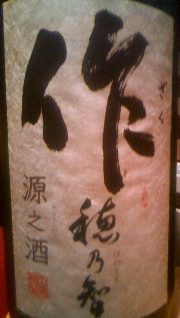 作
ざく
穂乃智
源之酒